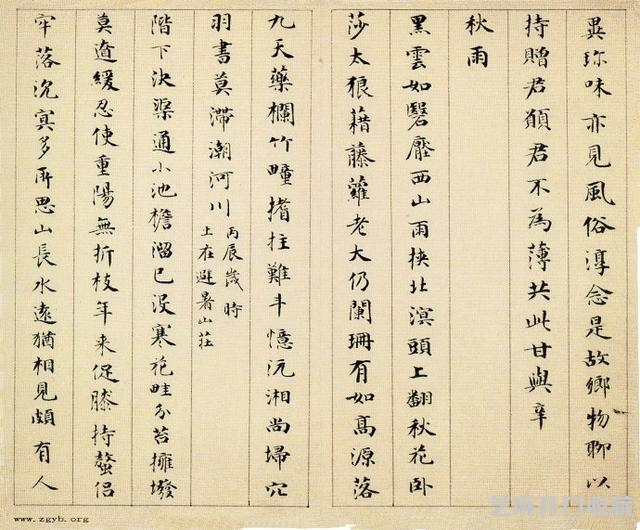 異珍味亦見風俗淳念是故鄉物聊以
持贈君願君不為薄共此甘與辛
秋雨
黑雲如翳壓西山雨挾北溟頭上翻秋花臥
莎太狼藉藤蘿老大仍闌珊有如高源落
九天藥欄竹疃撐拄難斗憶沅湘尚掃穴
羽書莫滯潮河川
丙辰歲時
上在避暑山莊
階下決渠通小池檐溜已沒寒花畦分苔擁墢
莫道緩忍使重陽無折枝年來促膝持螯侶
牢落沉冥多所思山長水遠猶相見頗有人
www.zgyb.org